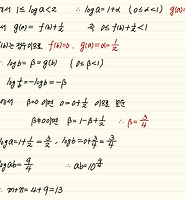 에서 1≤loga<2 ∴ loga=1+α (0≤α<1) g(a)=
g(a)=f(b)+1/2 0≤f(b)+1/2<1
f(b)는 정수이므로 f(b)=0, g(a)=α=1/2
∴ logb=β=g(b) (0≤β<1)
log 1/b=-logb=-β
에서 β=0 이면 0=0+1/2 이므로 모순
β≠0 이면 β=1-β+1/2 ∴ β=3/4
loga=1+1/2=3/2, logb=0+3/4=3/4
logab=9/4 ∴ ab=10^(9/4)
∴ m+n=4+9=13